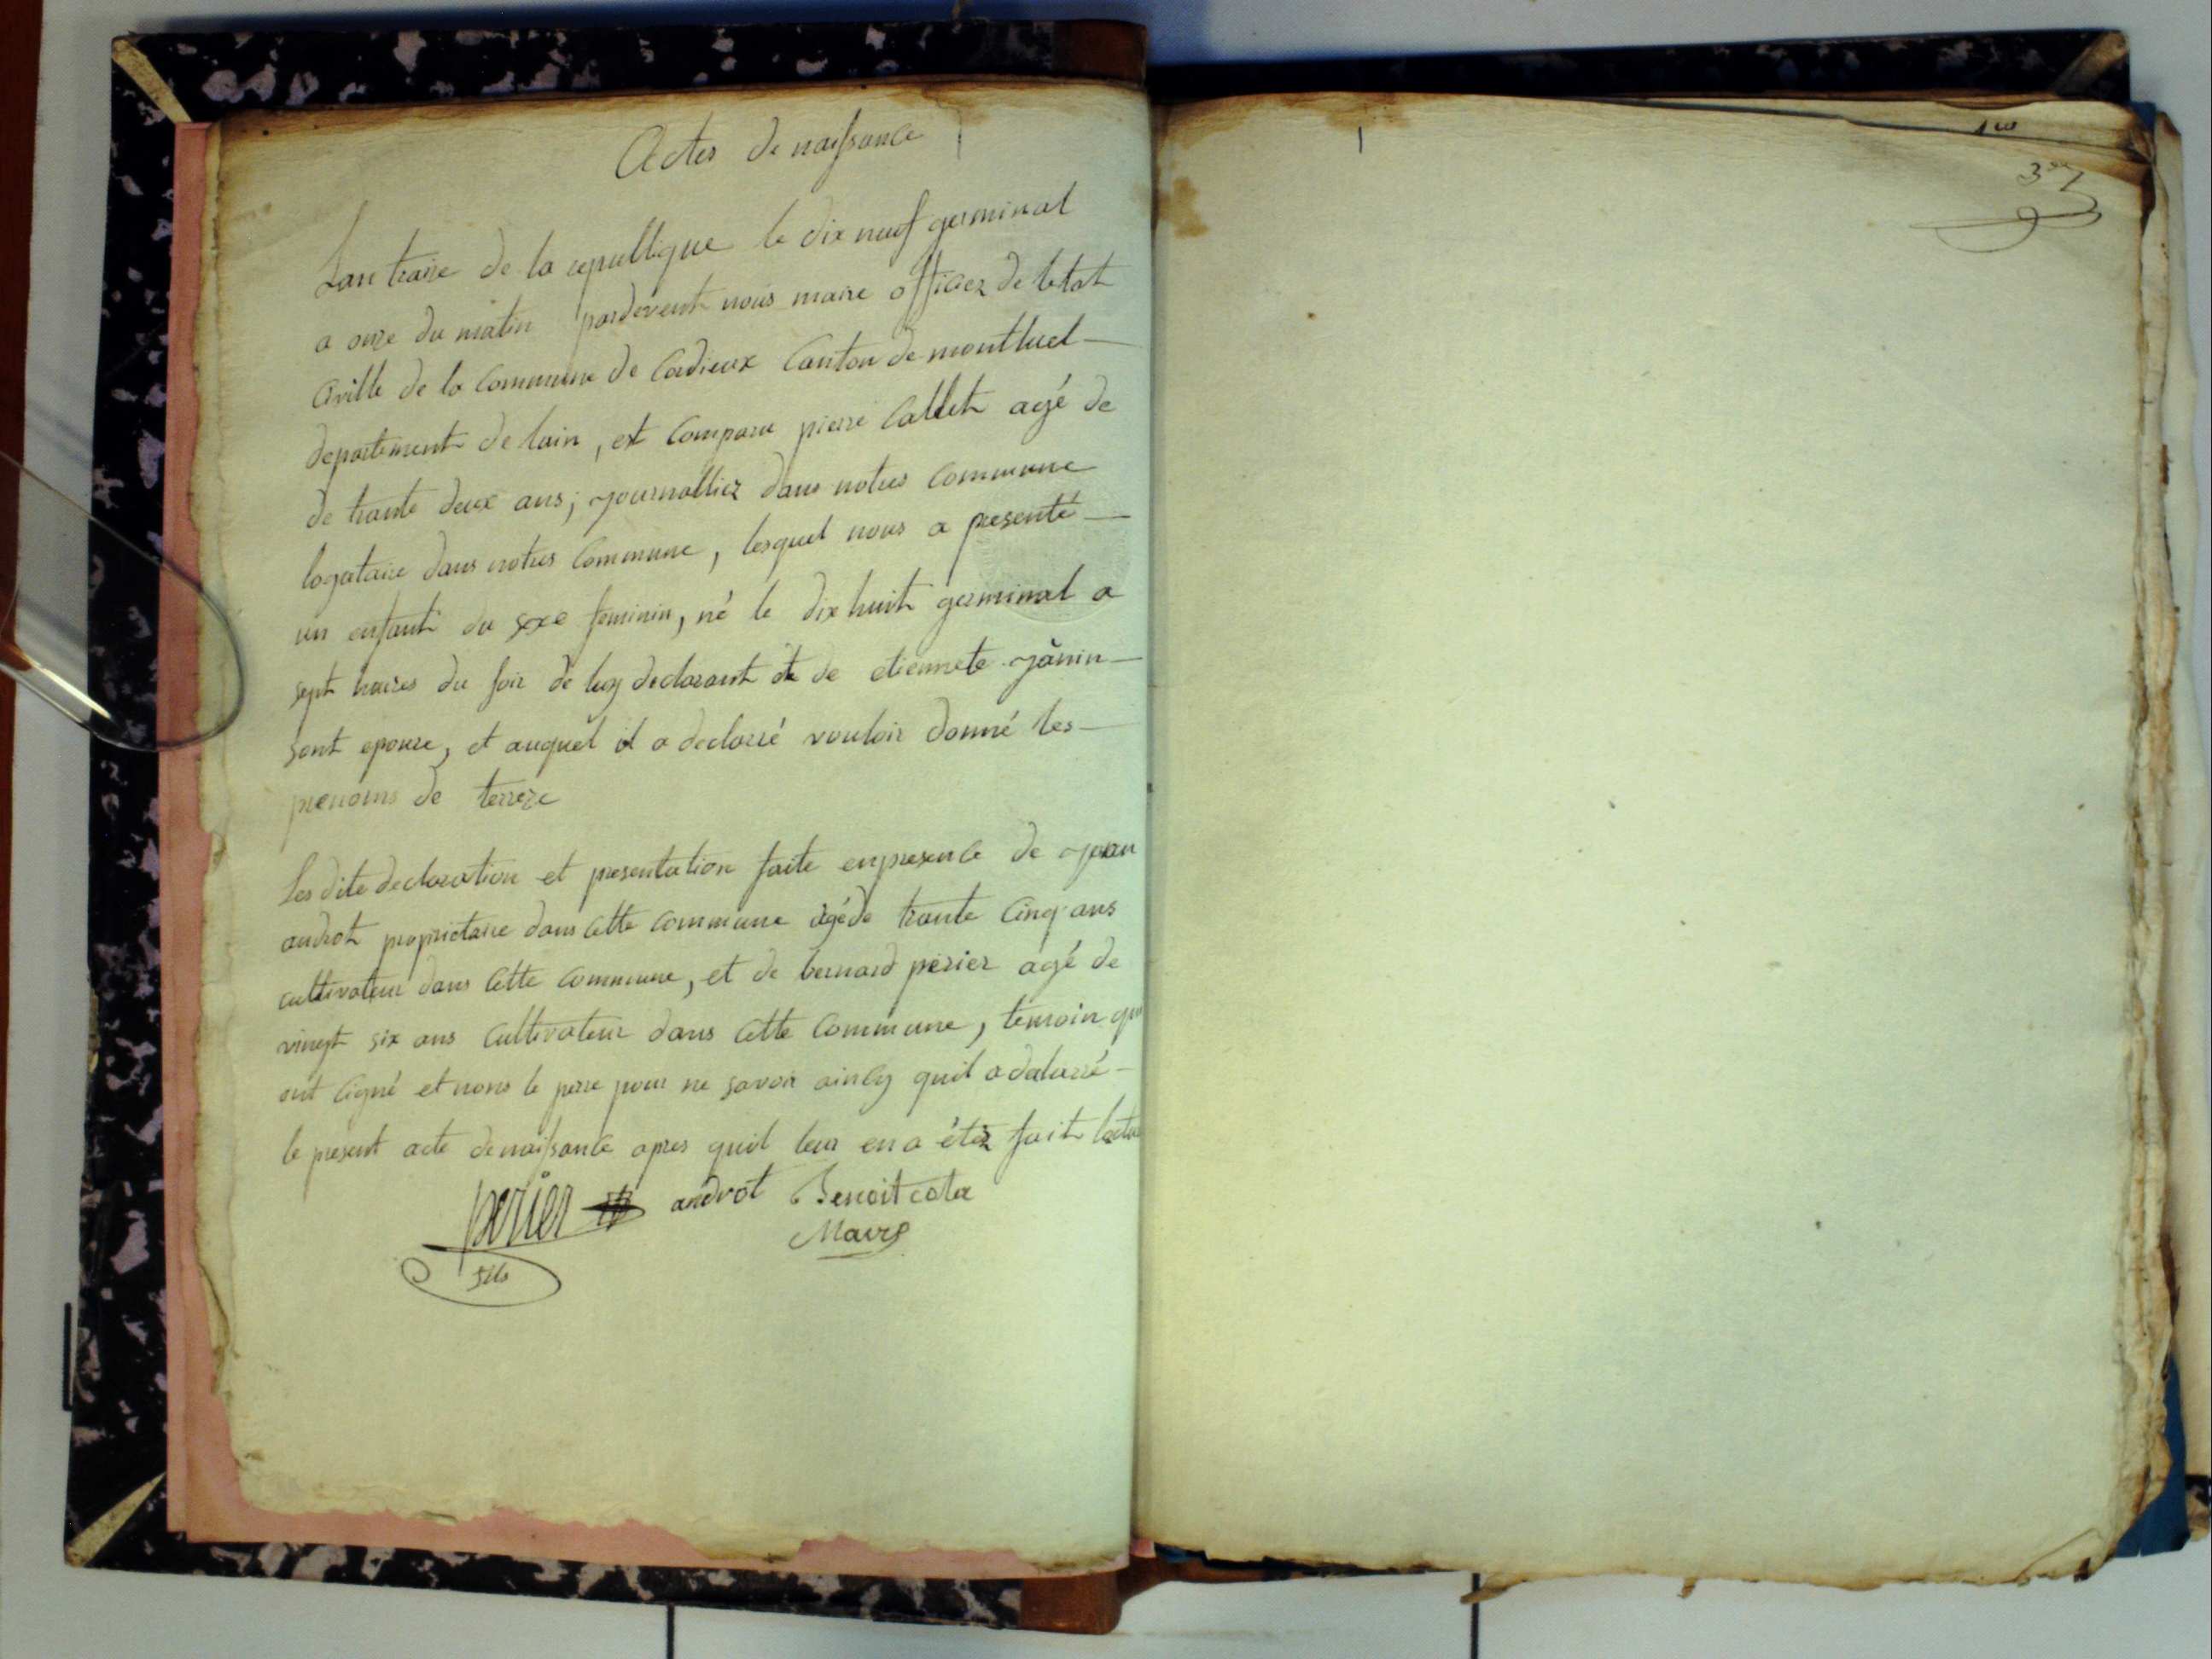 Actes de naissance
Lan traize de la republique le dix neuf germinal
a onze du matin pardevent nous maire officiez de letat
Civille de la Commune de Cordieux Canton de montluel
departement de lain, est Comparu pierre Callet agé de
de trante deux ans; journalliez dans notres Commune
logataire dans notres Commune, lesquel nous a presenté
un enfant du sexe feminin, né le dix huit germinal a
sept heures du soir de luy declarant et de etiennete janin
sont epouze, et auquel il a declarré vouloir donné les
prenoms de terreze
Les dite declaration et presentation faite enpresence de jean
androt propriétaire dans Cette Commune agé de trante Cinq ans
cultivateur dans Cette Commune, et de bernard périer agé de
vingt six ans Cultivateur dans Cette Commune, temoin qui
ont Cigné et nons le perre pour ne savoir aincy quil a
le present acte denaissance apres quil leur en a étéz fait lectu
perier androt Benoit cota
fils Maire